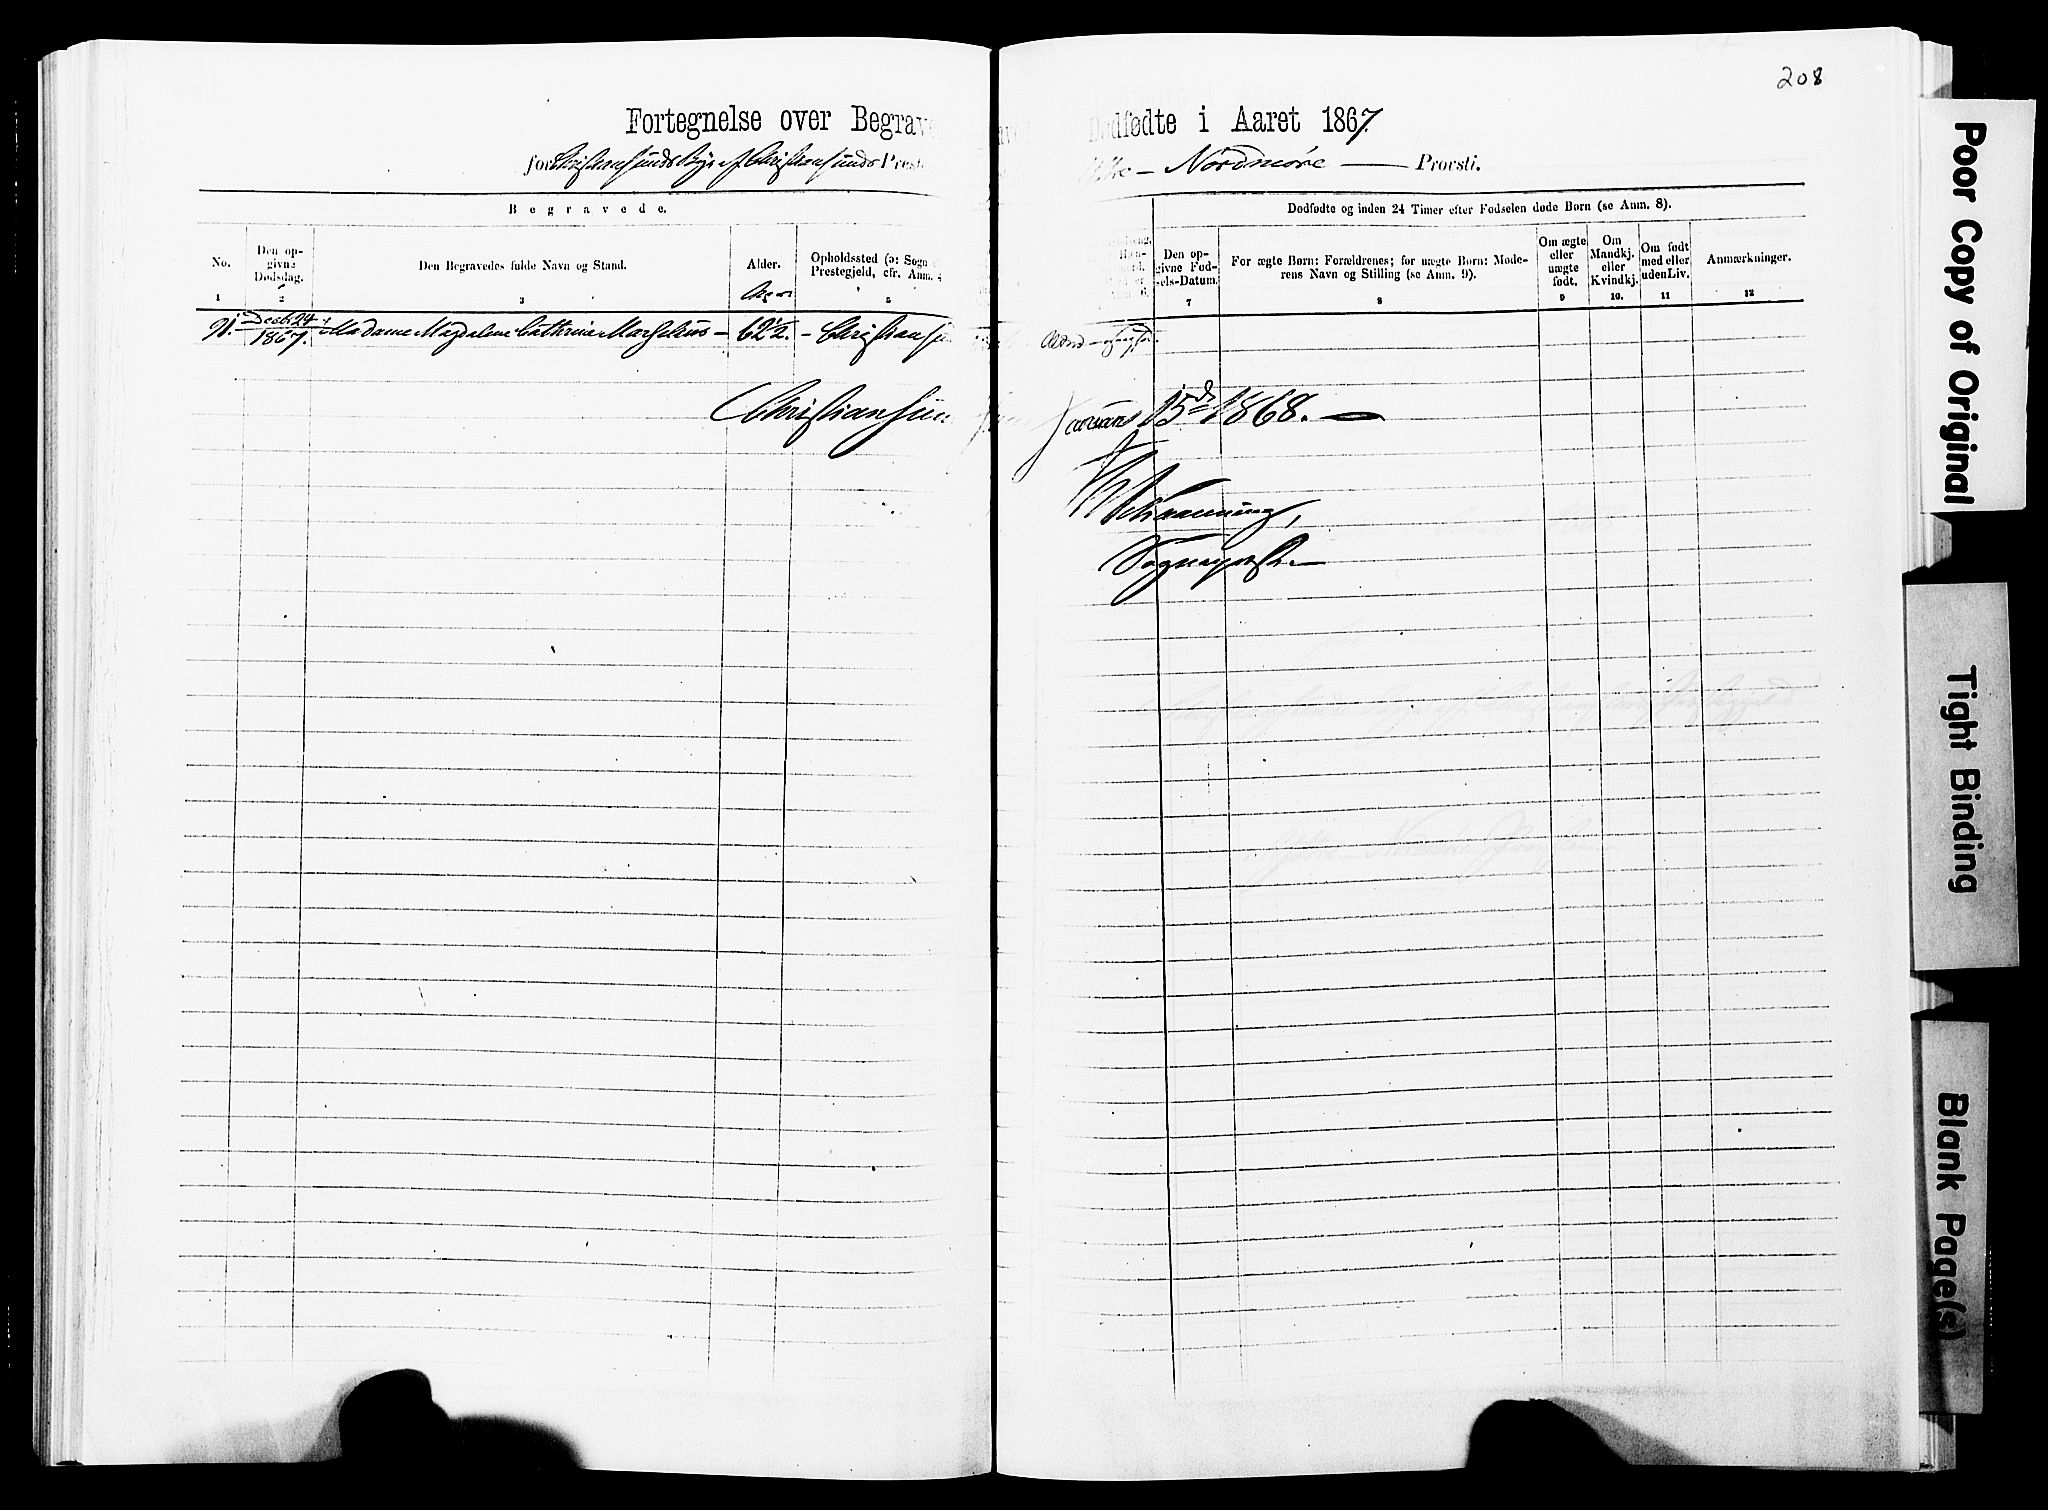 208
Fortegnelse over Begrave
Dødfødte i Aaret 1867
for Christiansunds Bye af Christiansunds Prest
Nordmøre — Provsti.
Begravede.
Dødfødte og inden 24 Timer efter Fødselen døde Børn (se Anm. 8).
No.
Den op-
givne
Dødsdag.
Den Begravedes fulde Navn og Stand.
Alder.
Opholdssted (ɔ: Sogn
Prestegjeld, cfr. Anm.
Den op-
givne Fød-
sels-Datum.
For ægte Børn: Forældrenes; for uægte Børn: Mode-
rens Navn og Stilling (se Anm. 9).
Om ægte
eller
uægte
født.
Om
Mandkj.
eller
Kvindkj.
Om født
med eller
uden Liv.
Anmærkninger.
1 2 3 5 7 8 9 10. 11 12
Decb. 24
1867. Madame Magdalene Cathrine — 62½. — Christiansun
Christiansun
Januar 15d 1868. —
Sogneprest. —
Poor Copy of Original
Tight Binding
Blank Page(s)